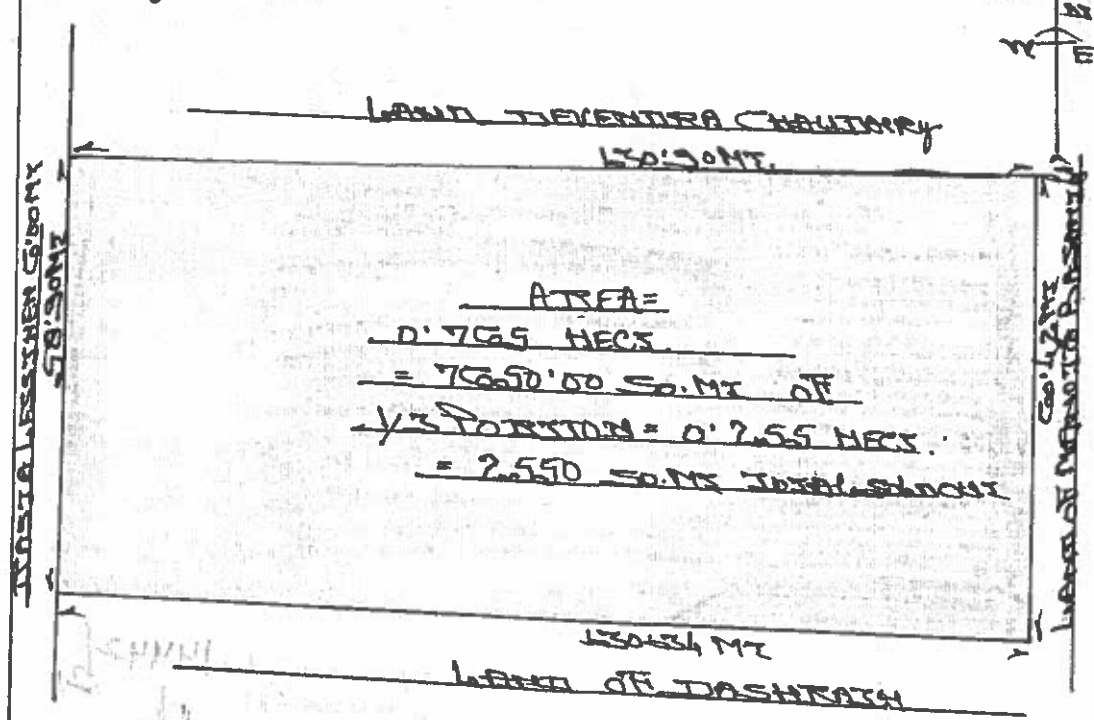 N
W E
LAND DEVENDRA CHAUDHARY
130'90 MT.
RASTA LESSTHER 6'00 MT
58'90 MT
AREA=
0'765 HECT.
= 7650'00 SQ.MT OF
1/3 PORTION = 0'255 HECT.
= 2550 SQ.MT TOTAL
60'42 MT
LAND OF
MT
LAND OF DASHRATH